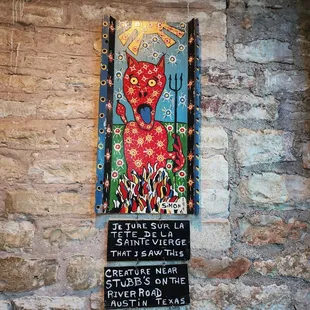 SIMON
JE JURE SUR LA
TETE DE LA
SAINTE VIERGE
THAT I SAW THIS
CREATURE NEAR
STUBB'S ON THE
RIVER ROAD
AUSTIN TEXAS